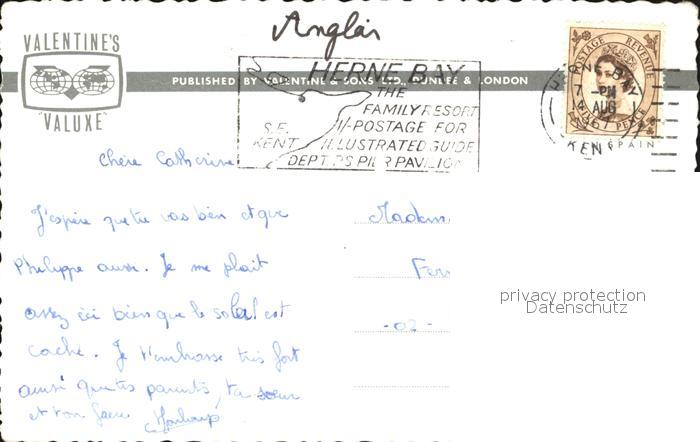 Anglais
VALENTINE'S
"VALUXE"
PUBLISHED BY VALENTINE & SONS LTD., DUNDEE & LONDON
HERNE BAY
THE
FAMILY RESORT
S.E. 1/-POSTAGE FOR
KENT ILLUSTRATED GUIDE
DEPT. PS PIER PAVILION
HERNE BAY
7 - PM
AUG
KENT
POSTAGE REVENUE
SIXPENCE
SPAIN
Chère Catherine
J'espère que tu vas bien et que
Philippe aussi. Je me plait
assez ici bien que le soleil est
caché. Je t'embrasse très fort
ainsi que tes parents, ta soeur
et ton frère
Madem
Ferr
-02-
privacy protection
Datenschutz